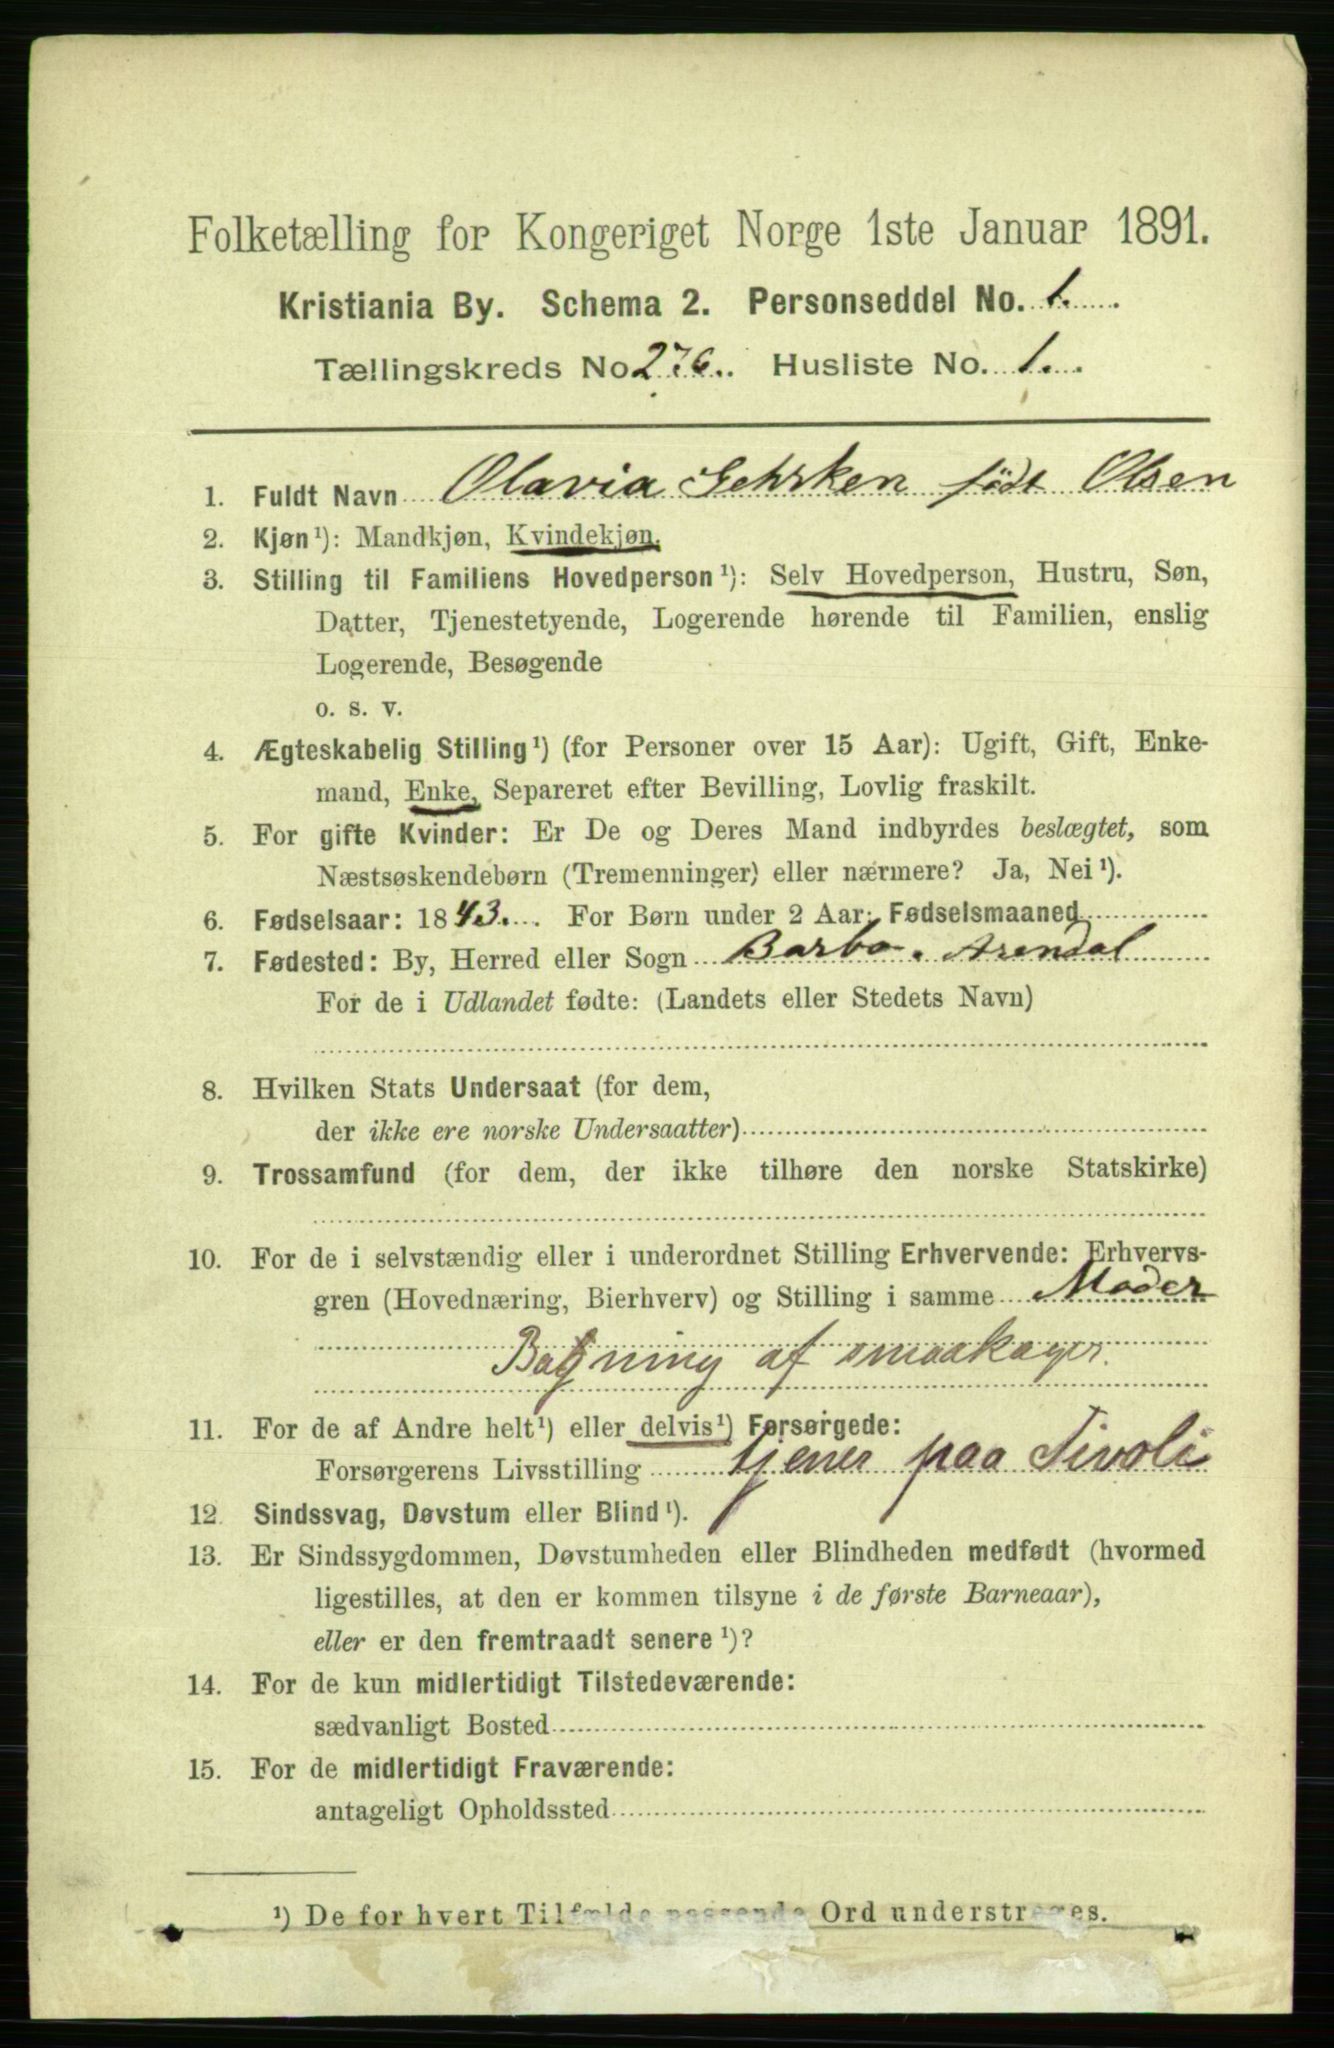 Folketælling for Kongeriget Norge 1ste Januar 1891.
Kristiania By. Schema 2. Personseddel No. 1.
Tællingskreds No 276. Husliste No. 1.
1. Fuldt Navn Olavia Gehrken født Olsen
2. Kjøn¹): Mandkjøn, Kvindekjøn.
3. Stilling til Familiens Hovedperson¹): Selv Hovedperson, Hustru, Søn,
Datter, Tjenestetyende, Logerende hørende til Familien, enslig
Logerende, Besøgende
o. s. v.
4. Ægteskabelig Stilling¹) (for Personer over 15 Aar): Ugift, Gift, Enke-
mand, Enke, Separeret efter Bevilling, Lovlig fraskilt.
5. For gifte Kvinder: Er De og Deres Mand indbyrdes beslægtet, som
Næstsøskendebørn (Tremenninger) eller nærmere? Ja, Nei¹).
6. Fødselsaar: 1843. For Børn under 2 Aar: Fødselsmaaned
7. Fødested: By, Herred eller Sogn Barbo. Arendal
For de i Udlandet fødte: (Landets eller Stedets Navn)
8. Hvilken Stats Undersaat (for dem,
der ikke ere norske Undersaatter)
9. Trossamfund (for dem, der ikke tilhøre den norske Statskirke)
10. For de i selvstændig eller i underordnet Stilling Erhvervende: Erhvervs-
gren (Hovednæring, Bierhverv) og Stilling i samme Moder
Bagning af smaakager.
11. For de af Andre helt¹) eller delvis¹) Forsørgede:
Forsørgerens Livsstilling tjener paa Tivoli
12. Sindssvag, Døvstum eller Blind¹).
13. Er Sindssygdommen, Døvstumheden eller Blindheden medfødt (hvormed
ligestilles, at den er kommen tilsyne i de første Barneaar),
eller er den fremtraadt senere¹)?
14. For de kun midlertidigt Tilstedeværende:
sædvanligt Bosted
15. For de midlertidigt Fraværende:
antageligt Opholdssted
¹) De for hvert Tilfælde passende Ord understreges.